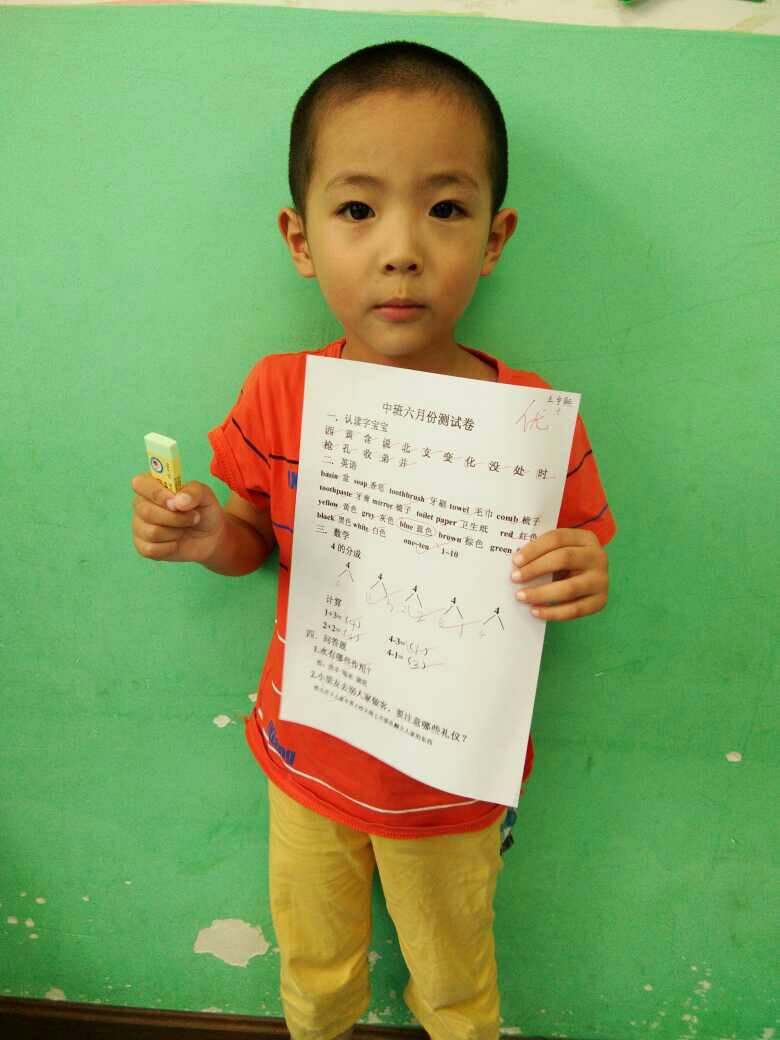 中班六月份测试卷
优
一、认读字宝宝
西 黄 含 说 北 支 变 化 没 处 时
枪 孔 收 弟 并
二、英语
basin 盆 soap 香皂 toothbrush 牙刷 towel 毛巾 comb 梳子
toothpaste 牙膏 mirror 镜子 toilet paper 卫生纸 red 红色
yellow 黄色 grey 灰色 blue 蓝色 brown 棕色 green
black 黑色 white 白色 one-ten 1-10
三、数学
4 的分成
4 4 4 4 4
计算
1+3=(4) 4-3=(1)
2+2=(4) 4-1=(3)
四、问答题
1.水有哪些作用?
2.小朋友去别人家做客，要注意哪些礼仪？
King